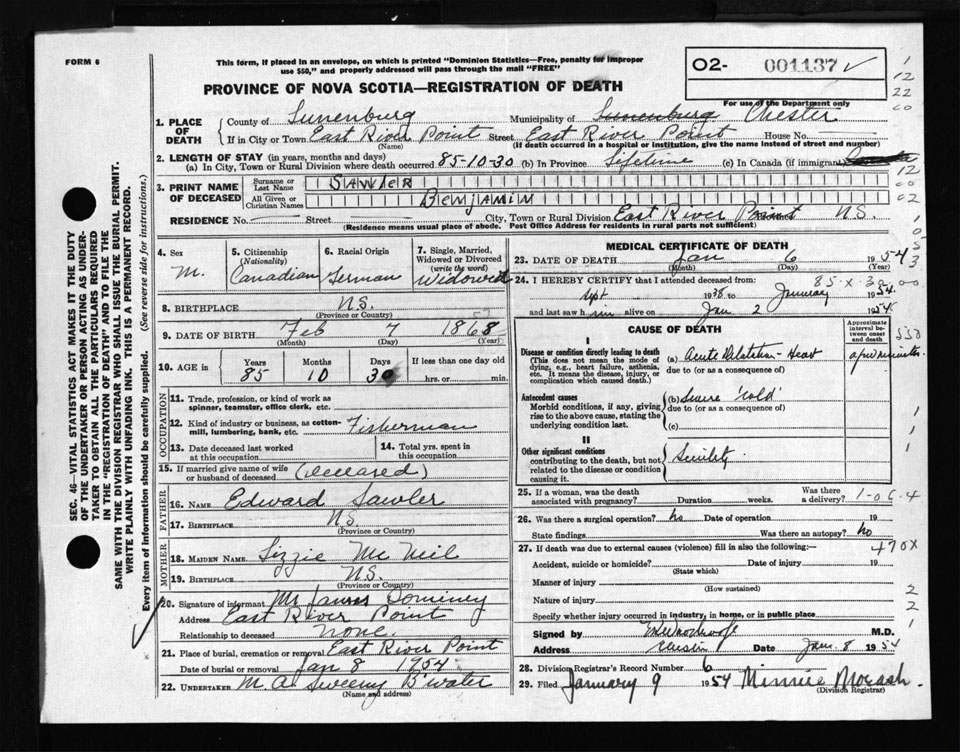 FORM 6
This form, if placed in an envelope, on which is printed "Dominion Statistics—Free, penalty for improper
use $50," and properly addressed will pass through the mail "FREE"
O2- 001137 ✓
PROVINCE OF NOVA SCOTIA—REGISTRATION OF DEATH
For use of the Department only
1. PLACE OF DEATH
County of Lunenburg Municipality of Lunenburg Chester
If in City or Town East River Point Street East River Point House No.
(Name) (If death occurred in a hospital or institution, give the name instead of street and number)
2. LENGTH OF STAY (in years, months and days)
(a) In City, Town or Rural Division where death occurred 85-10-30 (b) In Province Lifetime (c) In Canada (if immigrant)
3. PRINT NAME OF DECEASED
Surname or Last Name SAWLER
All Given or Christian Names Benjamin
RESIDENCE No. Street City, Town or Rural Division East River Point N.S.
(Residence means usual place of abode. Post Office Address for residents in rural parts not sufficient)
4. Sex
M.
5. Citizenship (Nationality)
Canadian
6. Racial Origin
German
7. Single, Married, Widowed or Divorced (write the word)
Widowed
8. BIRTHPLACE N.S.
(Province or Country)
9. DATE OF BIRTH Feb 7 1868
(Month) (Day) (Year)
10. AGE in
Years 85
Months 10
Days 30
If less than one day old
hrs. or min.
OCCUPATION
11. Trade, profession, or kind of work as spinner, teamster, office clerk, etc.
12. Kind of industry or business, as cotton-mill, lumbering, bank, etc. Fisherman
13. Date deceased last worked at this occupation
14. Total yrs. spent in this occupation
15. If married give name of wife or husband of deceased (deceased)
FATHER
16. NAME Edward Sawler
17. BIRTHPLACE N.S.
(Province or Country)
MOTHER
18. MAIDEN NAME Lizzie Mc Neil
19. BIRTHPLACE N.S.
(Province or Country)
20. Signature of informant Mr James Dominey
Address East River Point
Relationship to deceased none.
21. Place of burial, cremation or removal East River Point
Date of burial or removal Jan 8 1954
22. UNDERTAKER M. A. Sweeny B'water
(Name and address)
MEDICAL CERTIFICATE OF DEATH
23. DATE OF DEATH Jan 6 1954
(Month) (Day) (Year)
24. I HEREBY CERTIFY that I attended deceased from: 85-X-30
Sept 1938 to January 1954
and last saw him alive on Jan 2 1954
CAUSE OF DEATH
Approximate interval between onset and death
I
Disease or condition directly leading to death
(This does not mean the mode of dying, e.g., heart failure, asthenia, etc. It means the disease, injury, or complication which caused death.)
(a) Acute Dilatation - Heart
due to (or as a consequence of)
a few minutes.
Antecedent causes
Morbid conditions, if any, giving rise to the above cause, stating the underlying condition last.
(b) Severe 'cold'
due to (or as a consequence of)
(c)
II
Other significant conditions
contributing to the death, but not related to the disease or condition causing it.
Senility.
25. If a woman, was the death associated with pregnancy? Duration weeks. Was there a delivery?
26. Was there a surgical operation? no Date of operation 19
State findings Was there an autopsy? no
27. If death was due to external causes (violence) fill in also the following:—
Accident, suicide or homicide? Date of injury 19
(State which)
Manner of injury
(How sustained)
Nature of injury
Specify whether injury occurred in industry, in home, or in public place
Signed by M.D.
Address Chester Date Jan. 8 1954
28. Division Registrar's Record Number 6
29. Filed January 9 1954 Minnie
(Division Registrar)
SEC. 46—VITAL STATISTICS ACT MAKES IT THE DUTY
OF THE UNDERTAKER OR PERSON ACTING AS UNDER-
TAKER TO OBTAIN ALL THE PARTICULARS REQUIRED
IN THE "REGISTRATION OF DEATH" AND TO FILE THE
SAME WITH THE DIVISION REGISTRAR WHO SHALL ISSUE THE BURIAL PERMIT.
WRITE PLAINLY WITH UNFADING INK. THIS IS A PERMANENT RECORD.
Every item of information should be carefully supplied. (See reverse side for instructions.)
1
12
22
00
12
00
02
1-06.4
470X
2
2
1